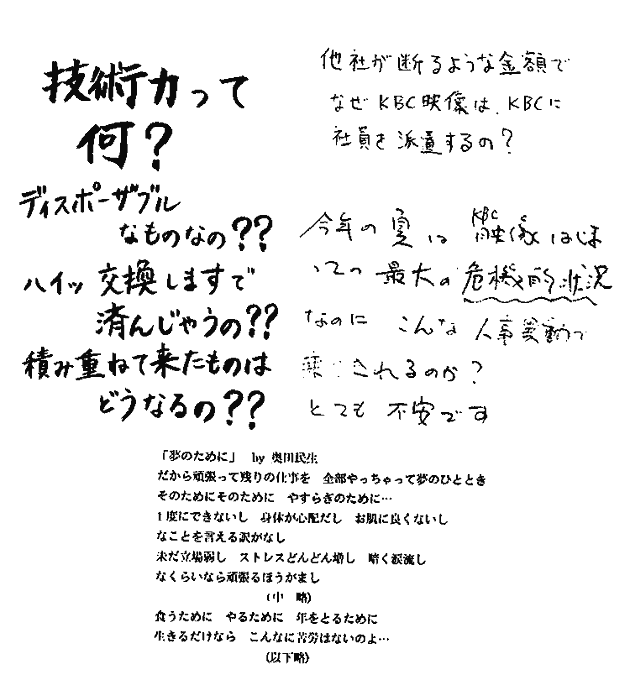 技術力って
何？
他社が断るような金額で
なぜKBC映像は、KBCに
社員を派遣するの？
ディスポーザブル
なものなの??
ハイッ交換しますで
済んじゃうの??
積み重ねて来たものは
どうなるの??
今年の夏は KBC映像はじま
っての最大の危機的状況
なのに こんな人事異動で
されるのか？
とても不安です
「夢のために」 by 奥田民生
だから頑張って残りの仕事を 全部やっちゃって夢のひととき
そのためにそのために やすらぎのために…
1度にできないし 身体が心配だし お肌に良くないし
なことを言える訳がなし
未だ立場弱し ストレスどんどん増し 暗く涙流し
なくらいなら頑張るほうがまし
(中 略)
食うために やるために 年をとるために
生きるだけなら こんなに苦労はないのよ…
(以下略)